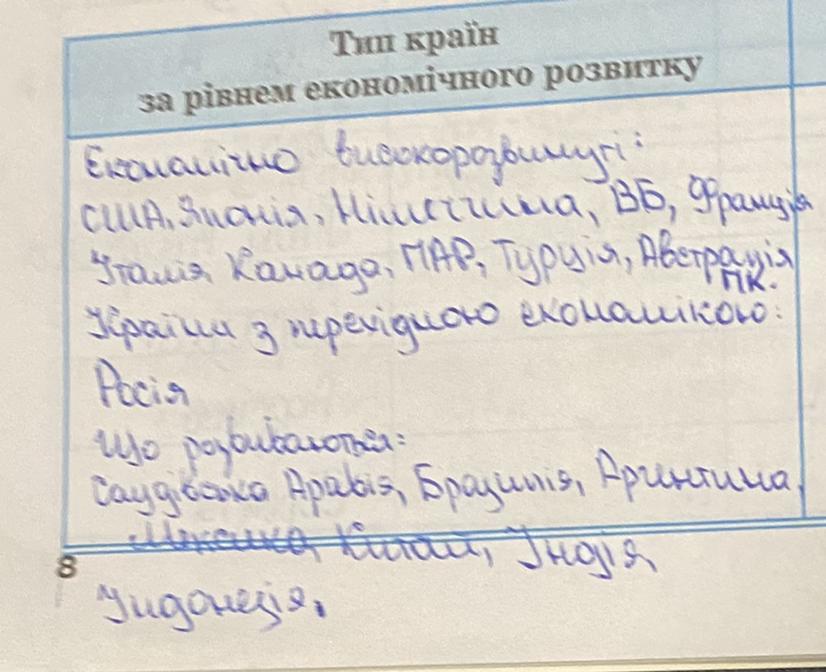 Тип країн
за рівнем економічного розвитку
Економічно високорозвинуті:
США, Японія, Німеччина, ВБ, Франція
Італія, Канада, ПАР, Турція, Австралія
ПК.
Країни з перехідною економікою:
Росія
Що розвиваються:
Саудівська Аравія, Бразилія, Аргентина,
Мексика, Китай, Індія
8
Індонезія.